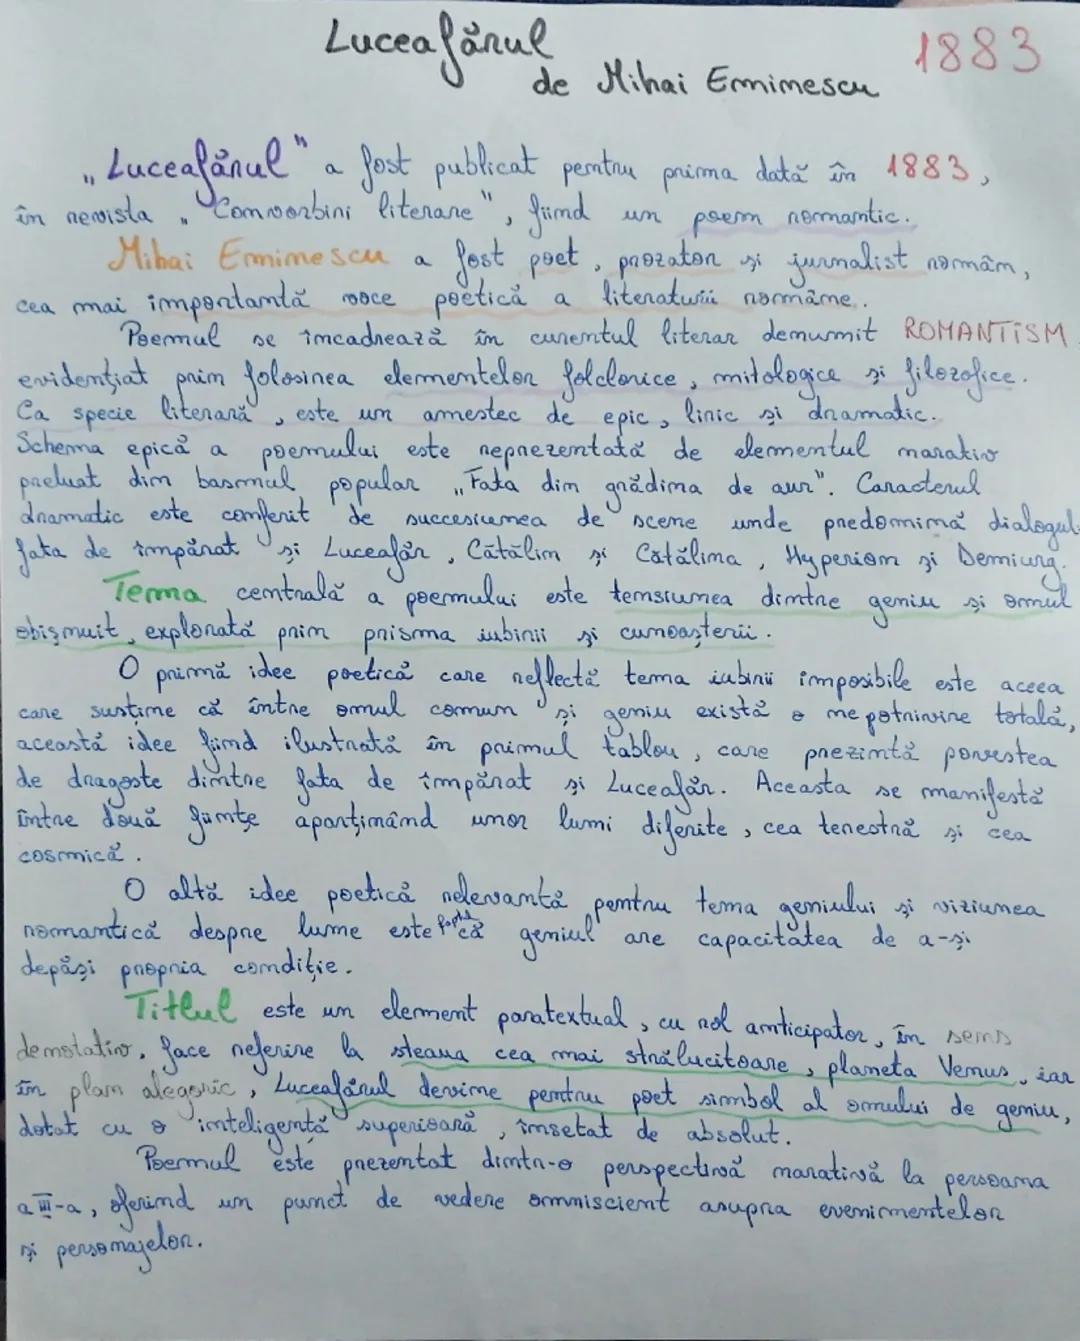 Luceafărul
de Mihai Eminescu
1883
„Luceafărul" a fost publicat pentru prima dată în 1883,
în revista „Convorbiri literare", fiind un poem romantic.
Mihai Eminescu a fost poet, prozator și jurnalist român,
cea mai importantă voce poetică a literaturii române.
Poemul se încadrează în curentul literar denumit ROMANTISM
evidențiat prin folosirea elementelor folclorice, mitologice și filozofice.
Ca specie literară, este un amestec de epic, liric și dramatic.
Schema epică a poemului este reprezentată de elementul narativ
preluat din basmul popular „Fata din grădina de aur". Caracterul
dramatic este conferit de succesiunea de scene unde predomină dialogul:
fata de împărat și Luceafăr, Cătălin și Cătălina, Hyperion și Demiurg.
Tema centrală a poemului este tensiunea dintre geniu și omul
obișnuit, explorată prin prisma iubirii și cunoașterii.
O primă idee poetică care reflectă tema iubirii imposibile este aceea
care susține că între omul comun și geniu există o nepotrivire totală,
această idee fiind ilustrată în primul tablou, care prezintă povestea
de dragoste dintre fata de împărat și Luceafăr. Aceasta se manifestă
între două ființe aparținând unor lumi diferite, cea terestră și cea
cosmică.
O altă idee poetică relevantă pentru tema geniului și viziunea
romantică despre lume este faptul că geniul are capacitatea de a-și
depăși propria condiție.
Titlul este un element paratextual, cu rol anticipator, în sens
denotativ, face referire la steaua cea mai strălucitoare, planeta Venus, iar
în plan alegoric, Luceafărul devine pentru poet simbol al omului de geniu,
dotat cu o inteligență superioară, însetat de absolut.
Poemul este prezentat dintr-o perspectivă narativă la persoana
a III-a, oferind un punct de vedere omniscient asupra evenimentelor
și personajelor.